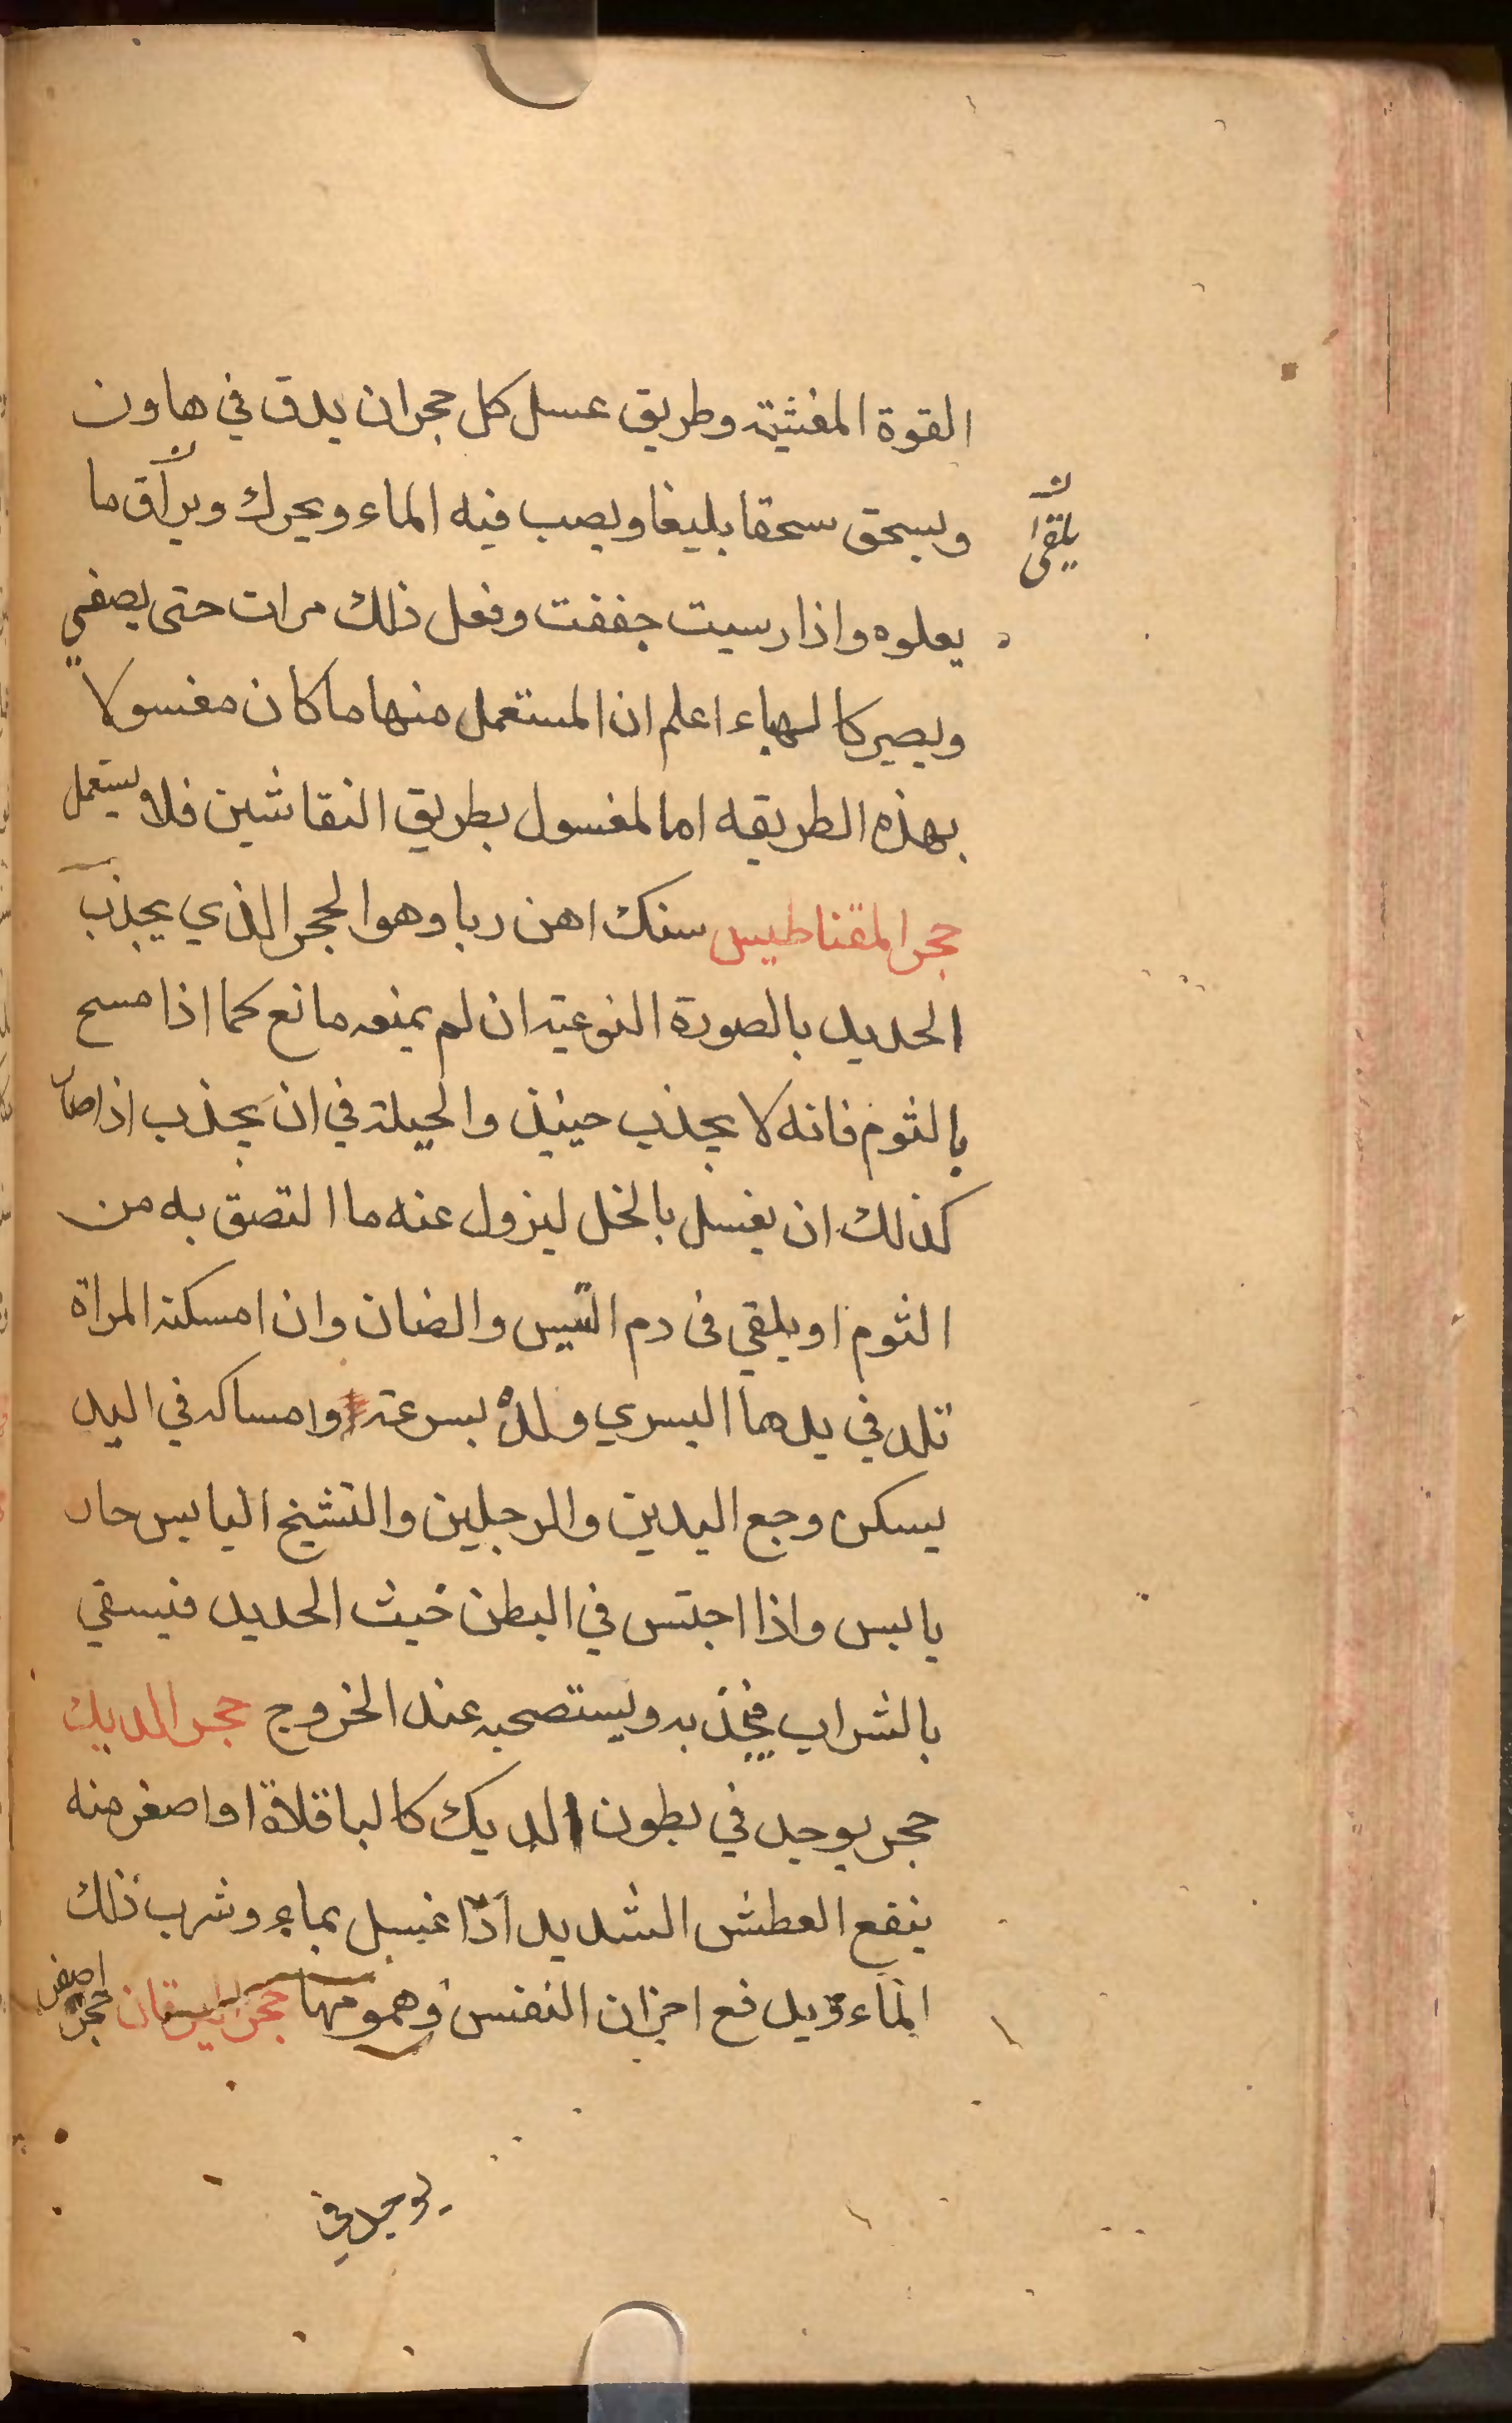 القوة المغثية وطريق غسل كل حجر ان يدق في هاون
ويسحق سحقا بليغا ويصب فيه الماء ويحرك ويراق ما
يلقى
يعلوه واذا رسبت جففت وفعل ذلك مرات حتى يصفى
ويصير كالهباء اعلم ان المستعمل منها ما كان مغسولا
بهذه الطريقه اما لمغسول بطريق النقاشين فلا يستعمل
حجر المقناطيس سنك اهن ربا وهو الحجر الذي يجذب
الحديد بالصورة النوعية ان لم يمنعه مانع كما اذا مسح
بالثوم فانه لا يجذب حينئذ والحيلة في ان يجذب اذا صار
كذلك ان يغسل بالخل ليزول عنه ما التصق به من
الثوم او يلقي في دم التيس والضان وان امسكته المراة
تلد في يدها اليسري ولدة بسرعة وامساكه في اليد
يسكن وجع اليدين والرجلين والتشنج اليابس حار
يابس واذا احتبس في البطن خبث الحديد فيسقي
بالشراب فيجذبه ويستصحبه عند الخروج حجر الديك
حجر يوجد في بطون الديك كالباقلاة او اصغر منه
ينفع العطش الشديد اذا غسل بماء وشرب ذلك
الماء ويدفع احزان النفس وهمومها حجر اليرقان حجر اصفر
يوجد في